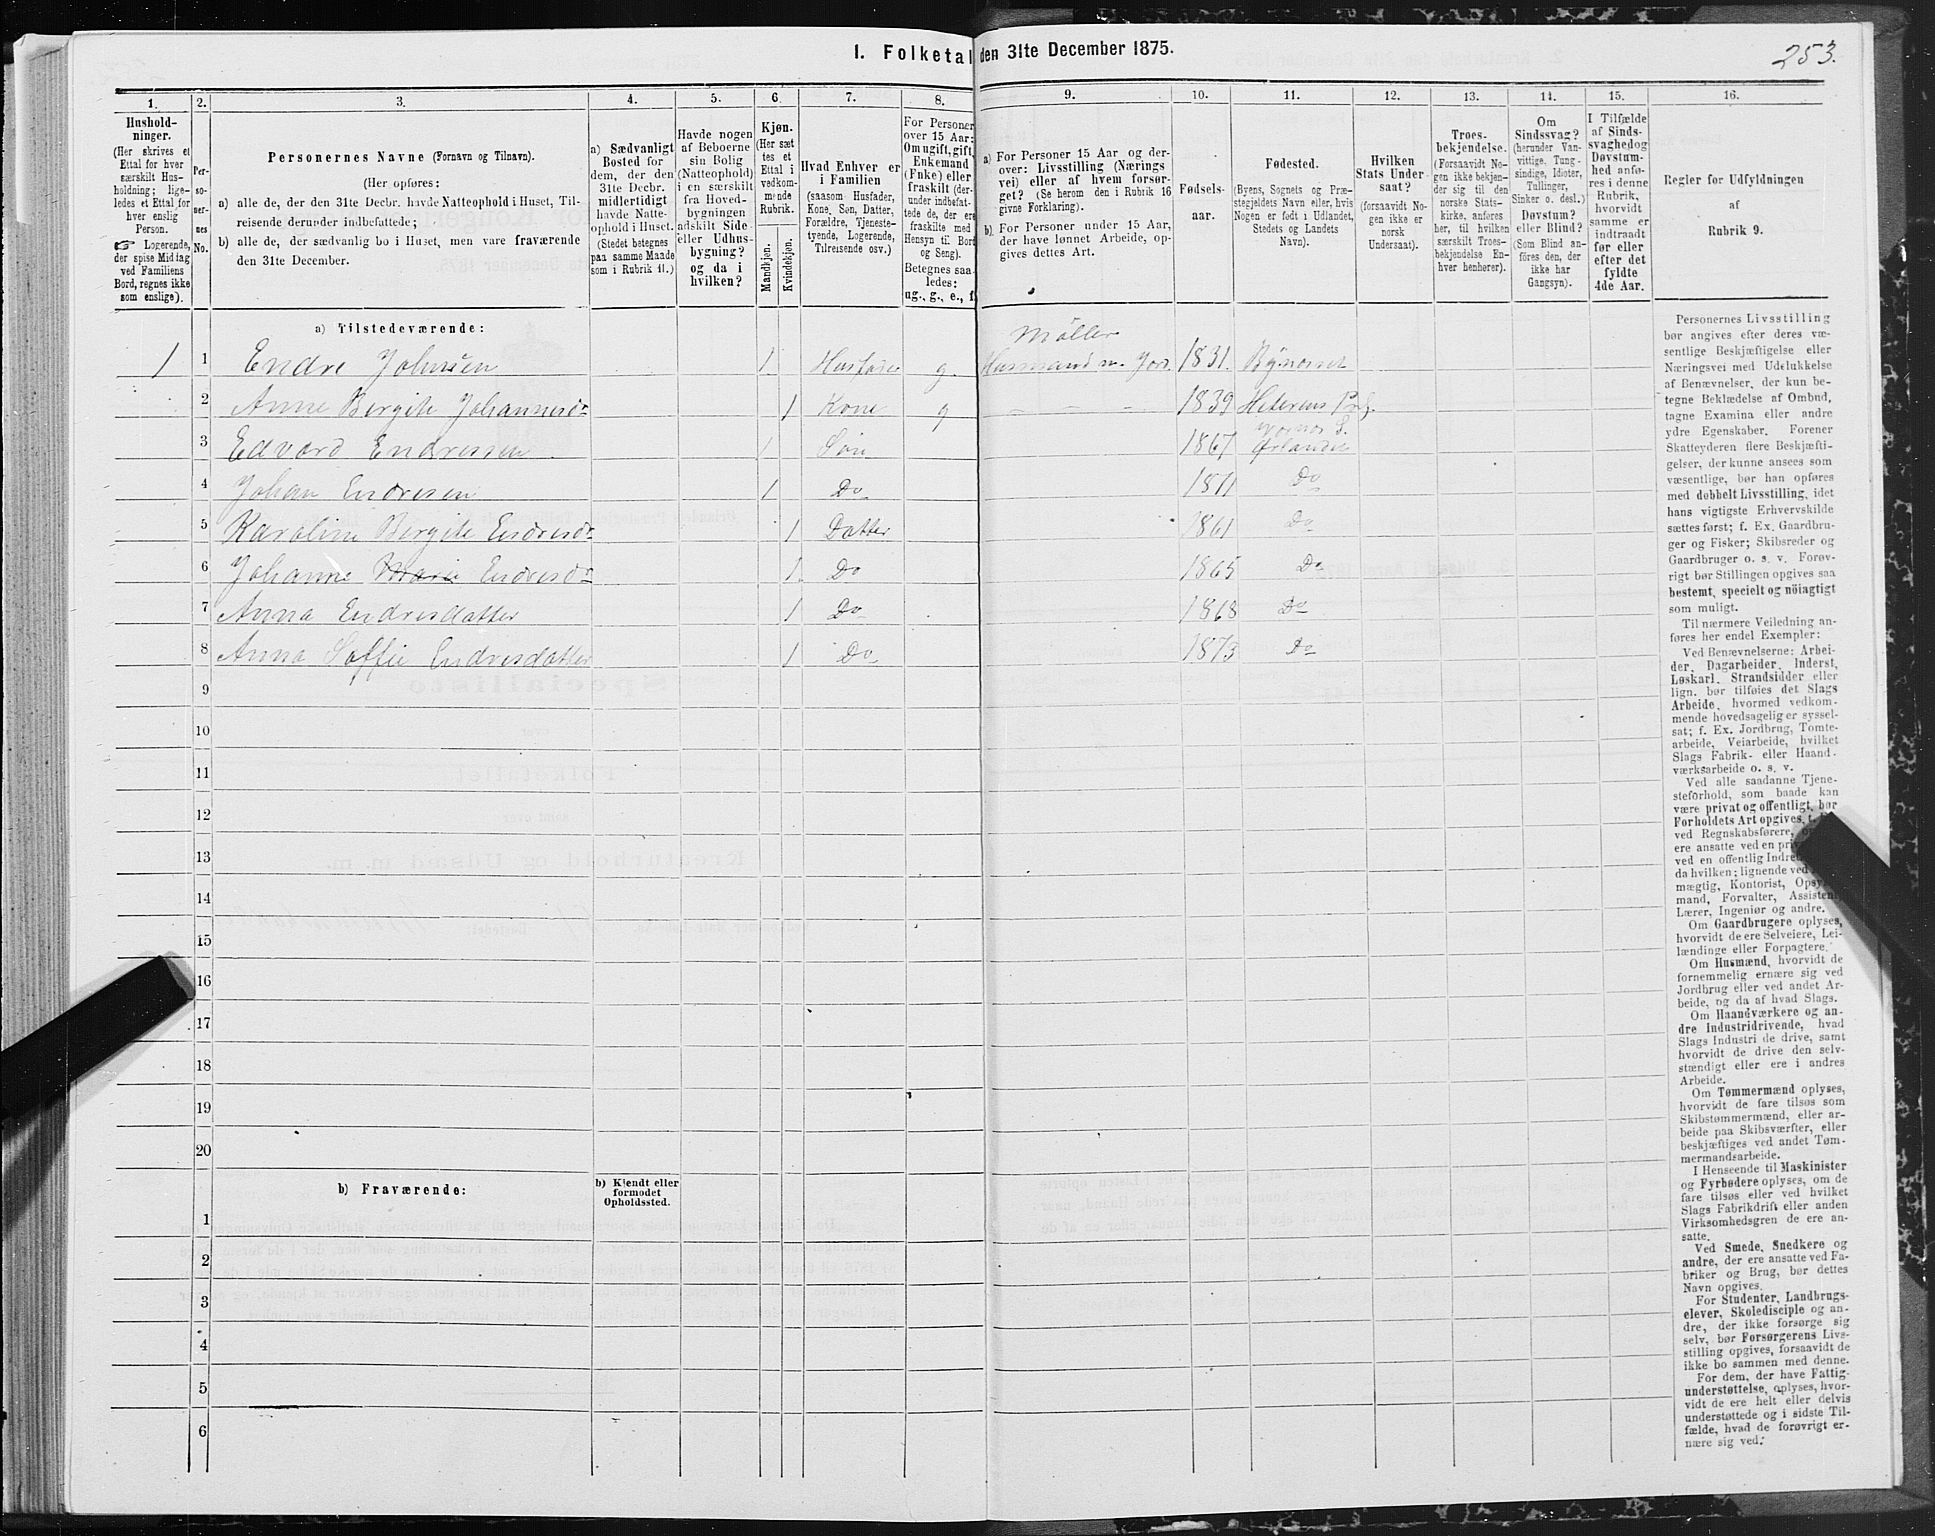 I. Folketal den 31te December 1875.
253.
1.
2.
3.
4.
5.
6.
7.
8.
9.
10.
11.
12.
13.
14.
15.
16.
Hushold-
ninger.
(Her skrives et
Ettal for hver
særskilt Hus-
holdning; lige-
ledes et Ettal for
hver enslig
Person.
☞ Logerende,
der spise Middag
ved Familiens
Bord, regnes ikke
som enslige).
Per-
so-
ner-
nes
No.
Personernes Navne (Fornavn og Tilnavn).
(Her opføres:
a) alle de, der den 31te Decbr. havde Natteophold i Huset, Til-
reisende derunder indbefattede;
b) alle de, der sædvanlig bo i Huset, men vare fraværende
den 31te December.
a) Sædvanligt
Bosted for
dem, der den
31te Decbr.
midlertidigt
havde Natte-
ophold i Huset.
(Stedet betegnes
paa samme Maade
som i Rubrik 11.)
Havde nogen
af Beboerne
sin Bolig
(Natteophold)
i en særskilt
fra Hoved-
bygningen
adskilt Side-
eller Udhus-
bygning?
og da i
hvilken?
Kjøn.
(Her sæt
tes et
Ettal i
vedkom-
mende
Rubrik.
Mandkjøn.
Kvindekjøn.
Hvad Enhver er
i Familien
(saasom Husfader,
Kone, Søn, Datter,
Forældre, Tjeneste-
tyende, Logerende,
Tilreisende osv.)
For Personer
over 15 Aar:
Om ugift, gift,
Enkemand
(Enke) eller
fraskilt (der-
under indbefat-
tede de, der ere
fraskilte med
Hensyn til Bord
og Seng).
Betegnes saa-
ledes:
ug., g., e., f.
a) For Personer 15 Aar og der-
over: Livsstilling (Nærings
vei) eller af hvem forsør-
get? (Se herom den i Rubrik 16
givne Forklaring).
b) For Personer under 15 Aar,
der have lønnet Arbeide, op-
gives dettes Art.
Fødsels-
aar.
Fødested.
(Byens, Sognets og Præ-
stegjeldets Navn eller, hvis
Nogen er født i Udlandet,
Stedets og Landets
Navn).
Hvilken
Stats Under-
saat?
(forsaavidt No-
gen ikke er
norsk
Undersaat).
Troes-
bekjendelse.
(Forsaavidt No-
gen ikke bekjen-
der sig til den
norske Stats-
kirke, anføres
her, til hvilken
særskilt Troes-
bekjendelse En-
hver henhører).
Om
Sindssvag?
(herunder Van-
vittige, Tung-
sindige, Idioter,
Tullinger,
Sinker o. desl.)
Døvstum?
eller Blind?
(Som Blind an-
føres den, der
ikke har
Gangsyn).
I Tilfælde
af Sinds-
svaghed og
Døvstum-
hed anfø-
res i denne
Rubrik,
hvorvidt
samme er
indtraadt
før eller
efter det
fyldte
4de Aar.
Regler for Udfyldningen
af
Rubrik 9.
a) Tilstedeværende:
Møller
1 1 Endre Johnsen 1 Husfader g. Husmand m. Jord 1831. Bynesset
2 Anne Bergite Johannesdr 1 Kone g - - - 1839
3 Edvard Endressen 1 Søn 1867 Ørlandet
4 Johan Endresen 1 Do 1871 Do
5 Karoline Bergite Endresdr 1 Datter 1861 Do
6 Johanne Marie Endresdr 1 Do 1865 Do
7 Anna Endresdatter 1 Do 1868 Do
8 Anna Soffie Endresdatter 1 Do 1873 Do
9
10
11
12
13
14
15
16
17
18
19
20
b) Fraværende:
b) Kjendt eller
formodet
Opholdssted.
1
2
3
4
5
6
Personernes Livsstilling
bør angives efter deres væ-
sentlige Beskjæftigelse eller
Næringsvei med Udelukkelse
af Benævnelser, der kun be-
tegne Beklædelse af Ombud,
tagne Examina eller andre
ydre Egenskaber. Forener
Skatteyderen flere Beskjæfti-
gelser, der kunne ansees som
væsentlige, bør han opføres
med dobbelt Livsstilling, idet
hans vigtigste Erhvervskilde
sættes først; f. Ex. Gaardbru-
ger og Fisker; Skibsreder og
Gaardbruger o. s. v. Forøv-
rigt bør Stillingen opgives saa
bestemt, specielt og nöiagtigt
som muligt.
Til nærmere Veiledning an-
føres her endel Exempler:
Ved Benævnelserne: Arbei-
der, Dagarbeider, Inderst,
Løskarl, Strandsidder eller
lign. bør tilføies det Slags
Arbeide, hvormed vedkom-
mende hovedsagelig er syssel-
sat; f. Ex. Jordbrug, Tomte-
arbeide, Veiarbeide, hvilket
Slags Fabrik- eller Haand-
værksarbeide o. s. v.
Ved alle saadanne Tjene-
steforhold, som baade kan
være privat og offentligt, bør
Forholdets Art opgives,
ved Regnskabsførere,
ere ansatte ved en
ved en offentlig
da hvilken; lignende ved
mægtig, Kontorist,
mand, Forvalter, Assistent,
Lærer, Ingeniør og andre.
Om Gaardbrugere oplyses,
hvorvidt de ere Selveiere, Lei-
lændinge eller Forpagtere.
Om Husmænd, hvorvidt de
fornemmelig ernære sig ved
Jordbrug eller ved andet Ar-
beide, og da af hvad Slags.
Om Haandværkere og an-
dre Industridrivende, hvad
Slags Industri de drive, samt
hvorvidt de drive den selv-
stændigt eller ere i andres
Arbeide.
Om Tømmermænd oplyses,
hvorvidt de fare tilsøs som
Skibstømmermænd, eller ar-
beide paa Skibsværfter, eller
beskjæftiges ved andet Tøm-
mermandsarbeide.
I Henseende til Maskinister
og Fyrbødere oplyses, om de
fare tilsøs eller ved hvilket
Slags Fabrikdrift eller anden
Virksomhedsgren de ere an-
satte.
Ved Smede, Snedkere og
andre, der ere ansatte ved Fa-
briker og Brug, bør dettes
Navn opgives.
For Studenter, Landbrugs-
elever, Skoledisciple og an-
dre, der ikke forsørge sig
selv, bør Forsørgerens Livs-
stilling opgives, forsaavidt de
ikke bo sammen med denne.
For dem, der have Fattig-
understøttelse, oplyses, hvor-
vidt de ere helt eller delvis
understøttede og i sidste Til-
fælde, hvad de forøvrigt er-
nære sig ved.